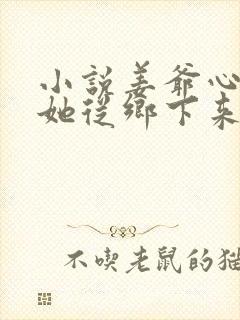 小說姜爺心
她從鄉下來
不喫老鼠的貓